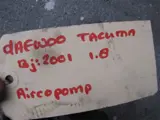 DAEWOO TACUMA
Bj: 2001 1.8
Aircopomp